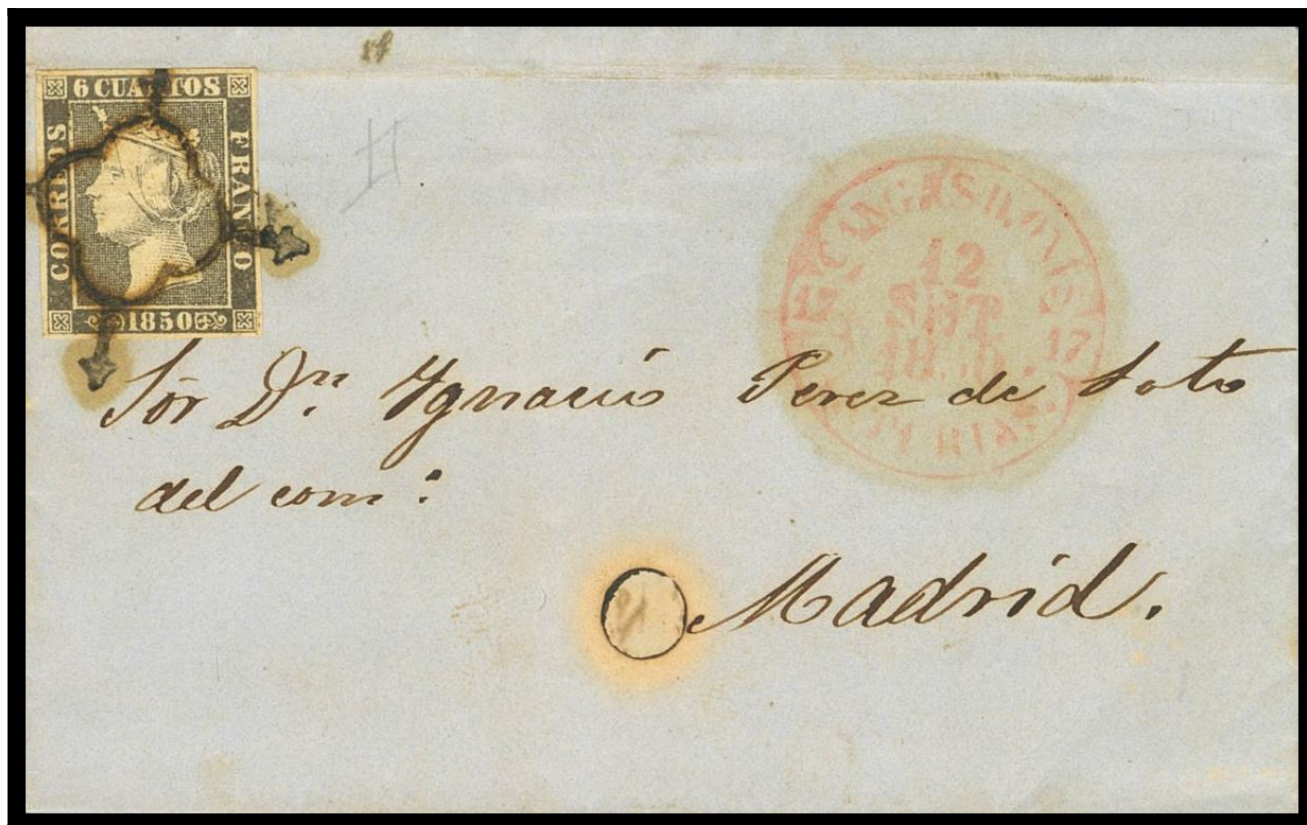 6 CUARTOS
CORREOS
FRANCO
1850
CANGAS D. ONIS
12
SET
17
ASTURIAS.
Sõr Dn. Ygnacio Perez de Soto
del com:
Madrid.